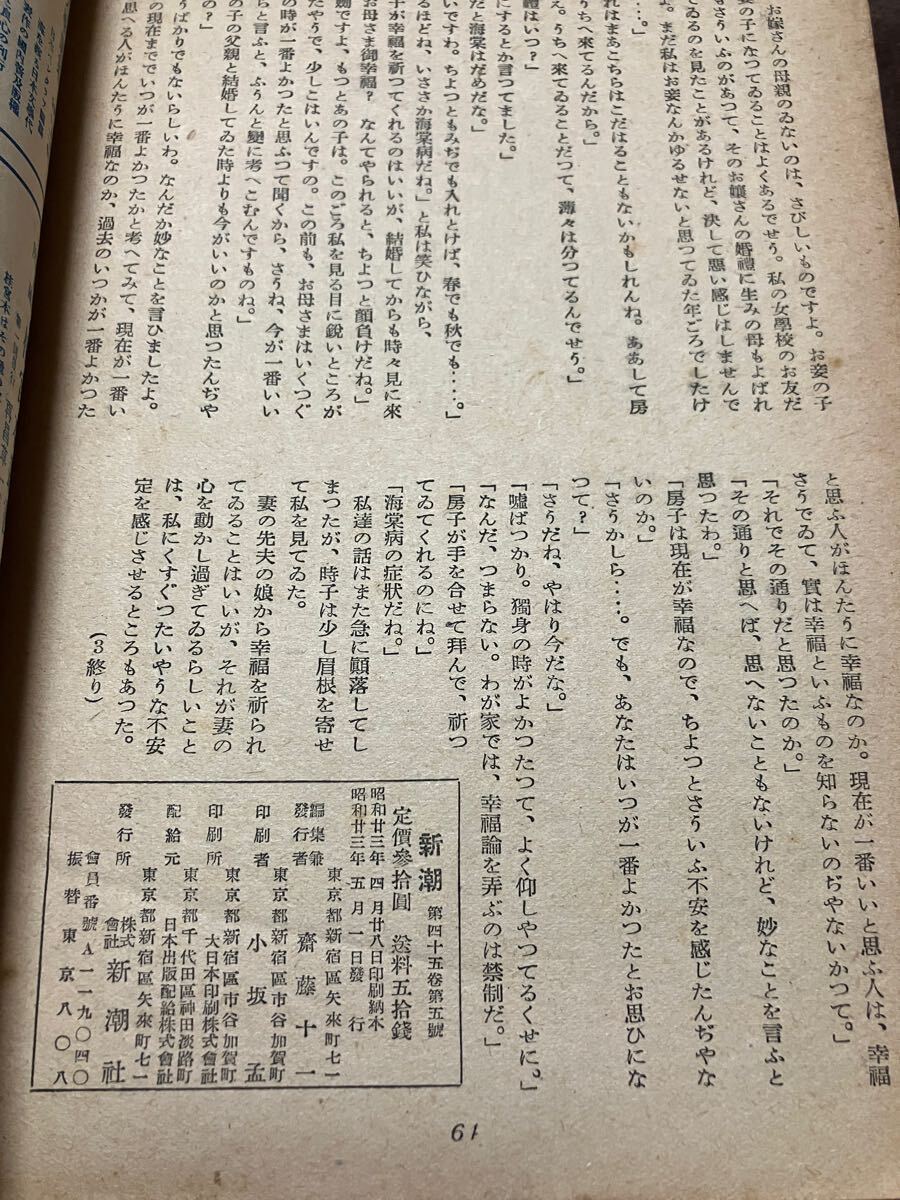 お嫁さんの母親のゐないのは、さびしいものですよ。お妾の子
妾の子になつてゐることはよくあるでせう。私の女學校のお友だ
さういふのがあつて、そのお孃さんの婚禮に生みの母もよばれ
てゐるのを見たことがあるけれど、決して悪い感じはしませんで
よ。まだ私はお妾なんかゆるせないと思つてゐた年ごろでしたけ
・・・。」
れはまあこちらはこだはることもないかもしれんね。ああして房
うちへ來てるんだから。」
え。うちへ來てゐることだつて、薄々は分つてるんでせう。」
禮はいつ？」
にするとか言つてました。」
だと海棠はだめだな。」
いですわ。ちよつともみぢでも入れとけば、春でも秋でも・・・。」
るほどね、いささか海棠病だね。」と私は笑ひながら、
子が幸福を祈つてくれるのはいいが、結婚してからも時々見に來
お母さま御幸福？　なんてやられると、ちよつと顔負けだね。」
ですよ、もつとあの子は。このごろ私を見る目に鋭いところが
たやうで、少しこはいんですの。この前も、お母さまはいくつぐ
の時が一番よかつたと思ふつて聞くから、さうね、今が一番いい
らと言ふと、ふうんと變に考へこむんですものね。」
の子の父親と結婚してゐた時よりも今がいいのかと思つたんぢや
の？」
うばかりでもないらしいわ。なんだか妙なことを言ひましたよ。
の現在まででいつが一番よかつたかと考へてみて、現在が一番い
思へる人がほんたうに幸福なのか、過去のいつかが一番よかつた
と思ふ人がほんたうに幸福なのか。現在が一番いいと思ふ人は、幸福
さうでゐて、實は幸福といふものを知らないのぢやないかつて。」
「それでその通りだと思つたのか。」
「その通りと思へば、思へないこともないけれど、妙なことを言ふと
思つたわ。」
「房子は現在が幸福なので、ちよつとさういふ不安を感じたんぢやな
いのか。」
「さうかしら・・・。でも、あなたはいつが一番よかつたとお思ひにな
つて？」
「さうだね、やはり今だな。」
「嘘ばつかり。獨身の時がよかつたつて、よく仰しやつてるくせに。」
「なんだ、つまらない。わが家では、幸福論を弄ぶのは禁制だ。」
「房子が手を合せて拜んで、祈つ
てゐてくれるのにね。」
「海棠病の症狀だね。」
私達の話はまた急に顚落してし
まつたが、時子は少し眉根を寄せ
て私を見てゐた。
妻の先夫の娘から幸福を祈られ
てゐることはいいが、それが妻の
心を動かし過ぎてゐるらしいこと
は、私にくすぐつたいやうな不安
定を感じさせるところもあつた。
（3終り）
新潮　第四十五卷第五號
定價參拾圓　送料五拾錢
昭和廿三年 四月廿八日印刷納本
昭和廿三年 五月一日發行
東京都新宿區矢來町七一
編集兼發行者　齋藤十一
東京都新宿區市谷加賀町
印刷者　小坂孟
東京都新宿區市谷加賀町
印刷所　大日本印刷株式會社
東京都千代田區神田淡路町
配給元　日本出版配給株式會社
東京都新宿區矢來町七一
發行所　株式會社　新潮社
會員番號A一一九〇四〇
振替東京八〇八
61